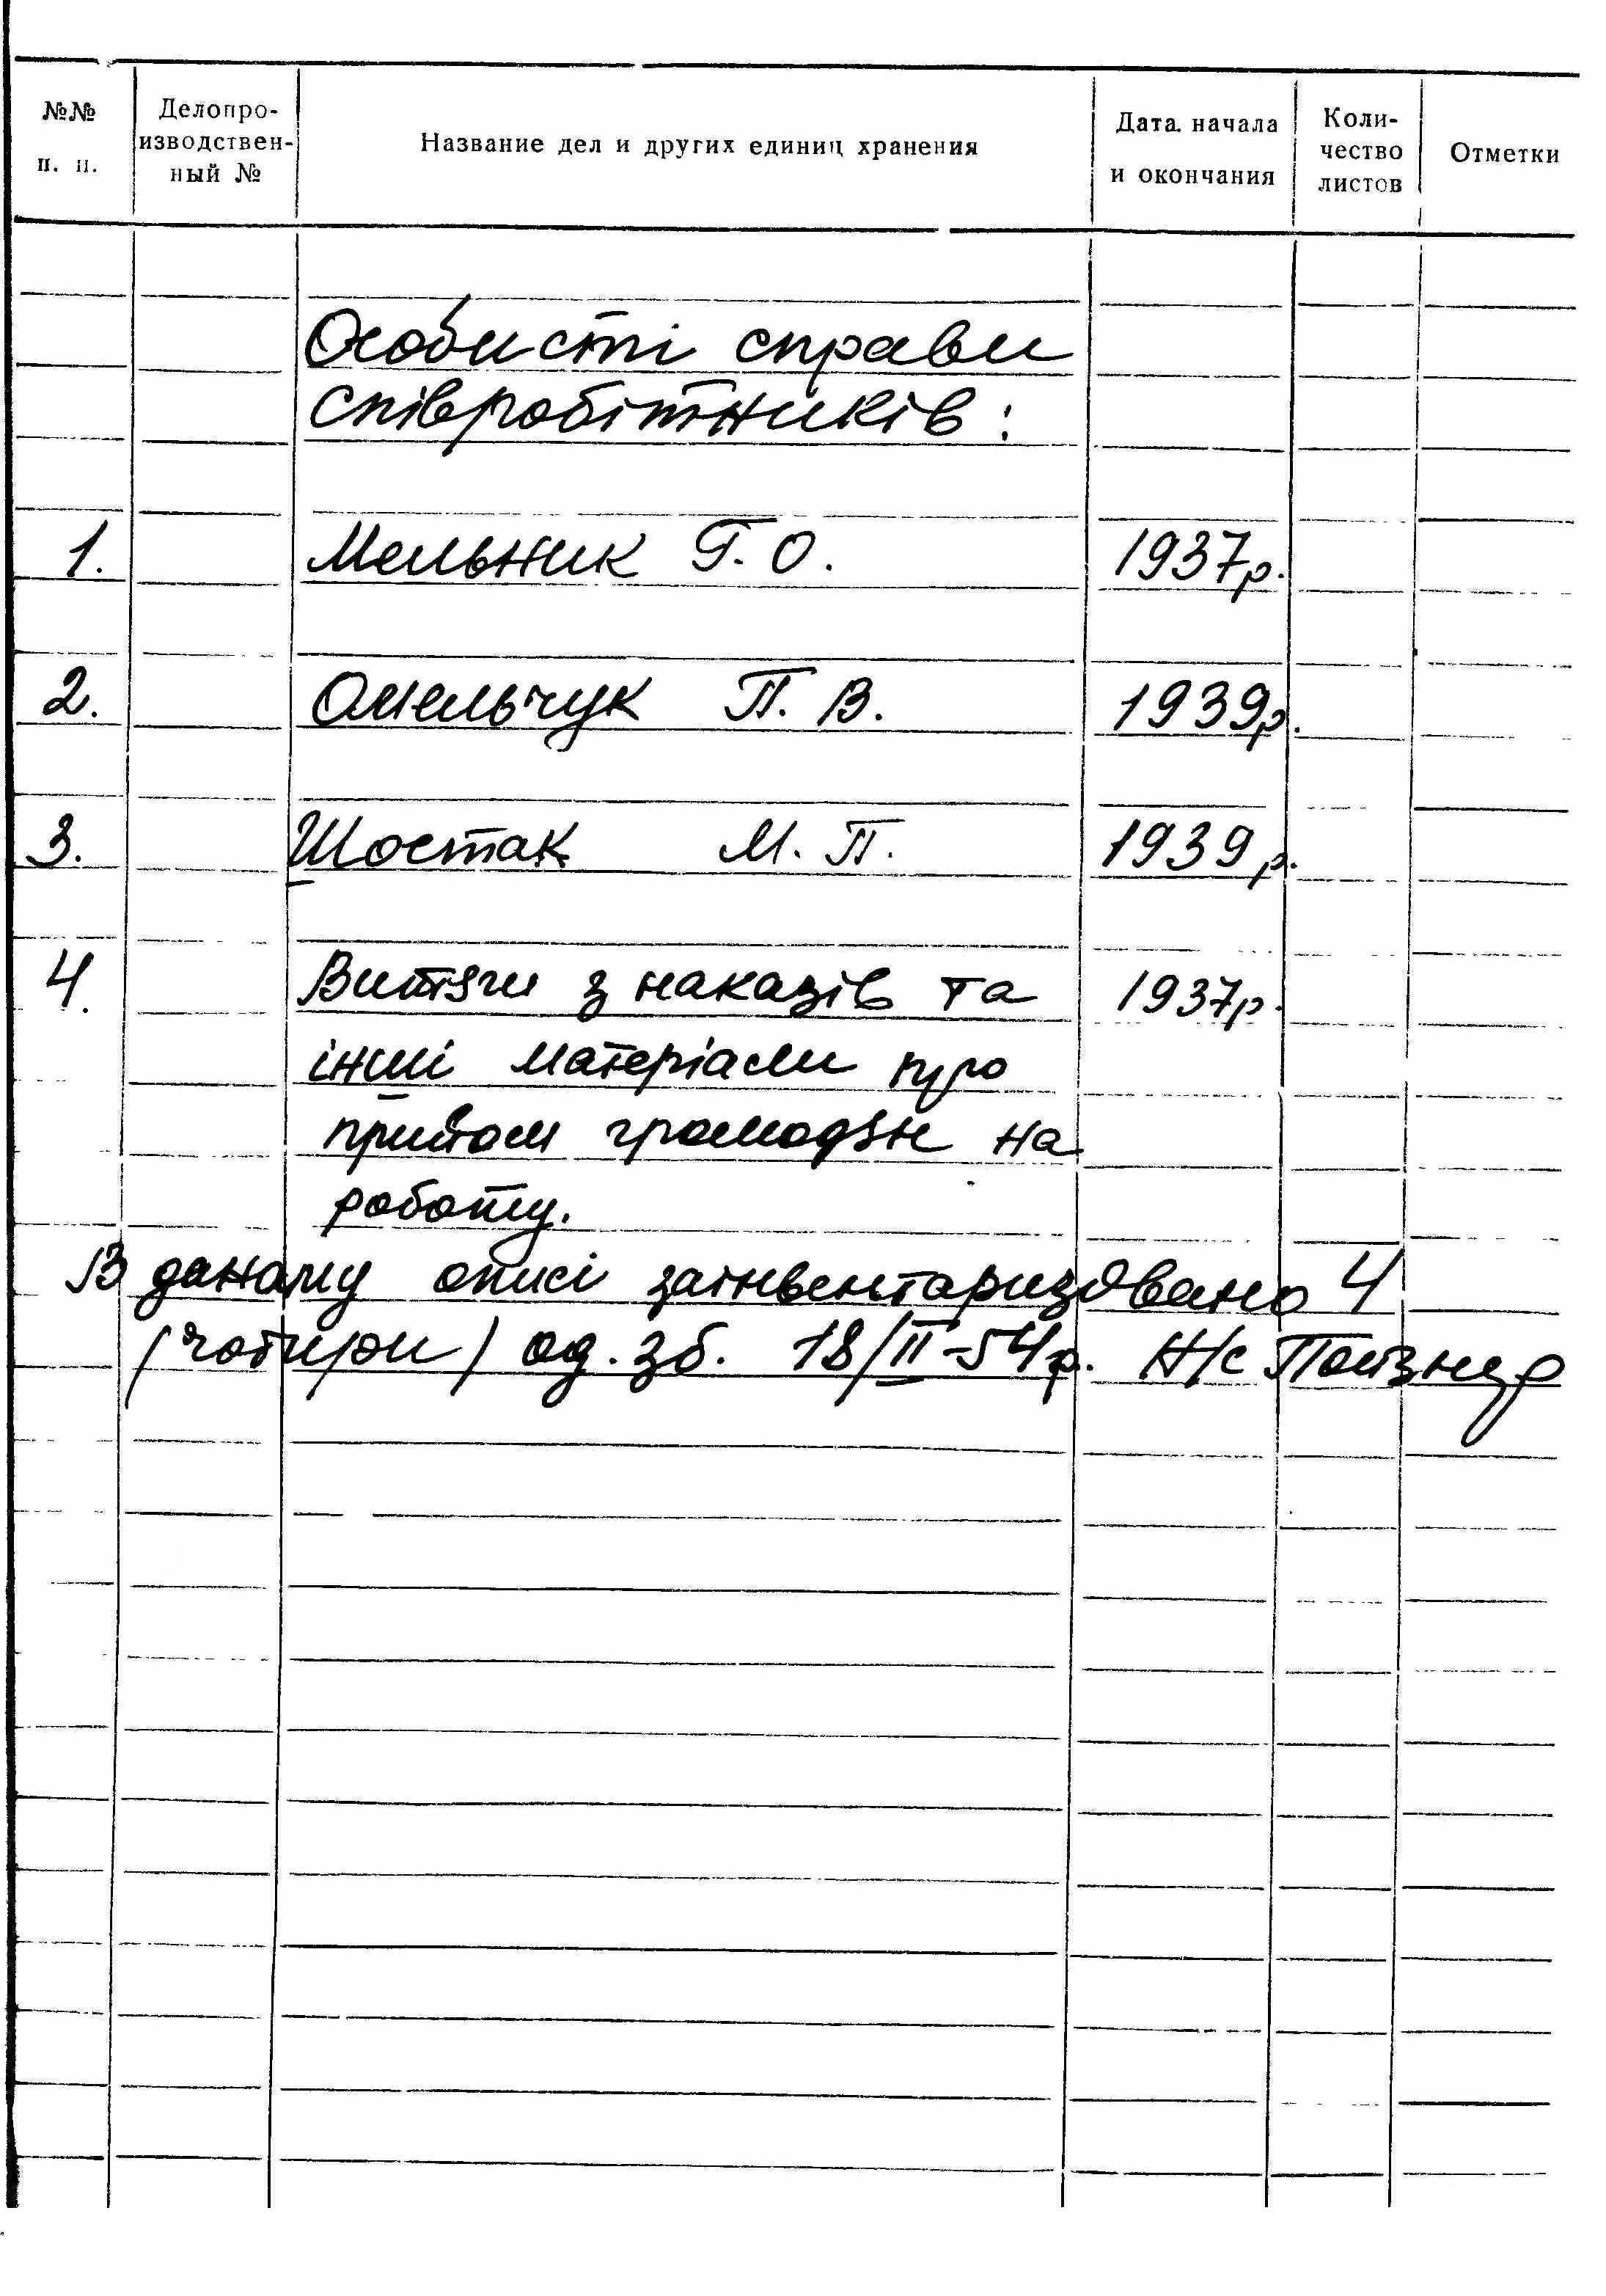 №№ п. п.
Делопро-
изводствен-
ный №
Название дел и других единиц хранения
Дата начала
и окончания
Коли-
чество
листов
Отметки
Особисті справи
співробітників:
1. Мельник Г. О. 1937р.
2. Омельчук П. В. 1939р.
3. Шостак М. П. 1939р.
4. Витяги з наказів та 1937р.
інші матеріали про
прийом громодян на
роботу.
В даному описі заінвентаризовано 4
(чотири) од. зб. 18/II-54р. Н/с